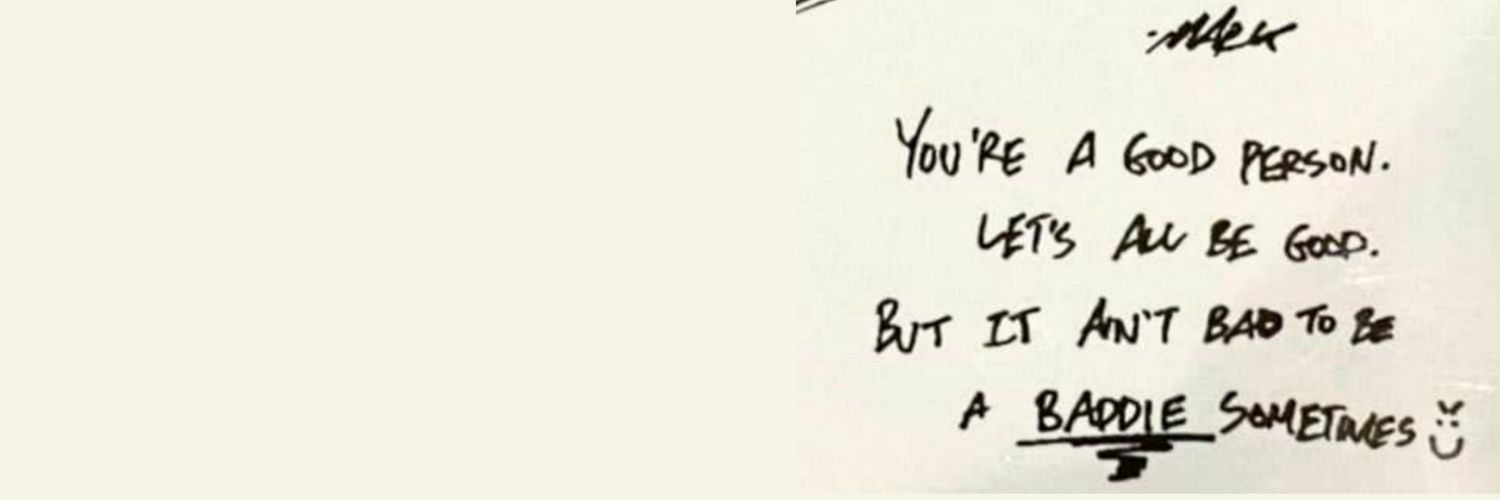 -MARK
YOU'RE A GOOD PERSON.
LET'S ALL BE GOOD.
BUT IT AIN'T BAD TO BE
A BADDIE SOMETIMES